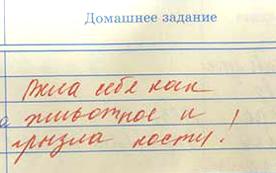 Домашнее задание
Вела себе как
животное и
грызла кости!